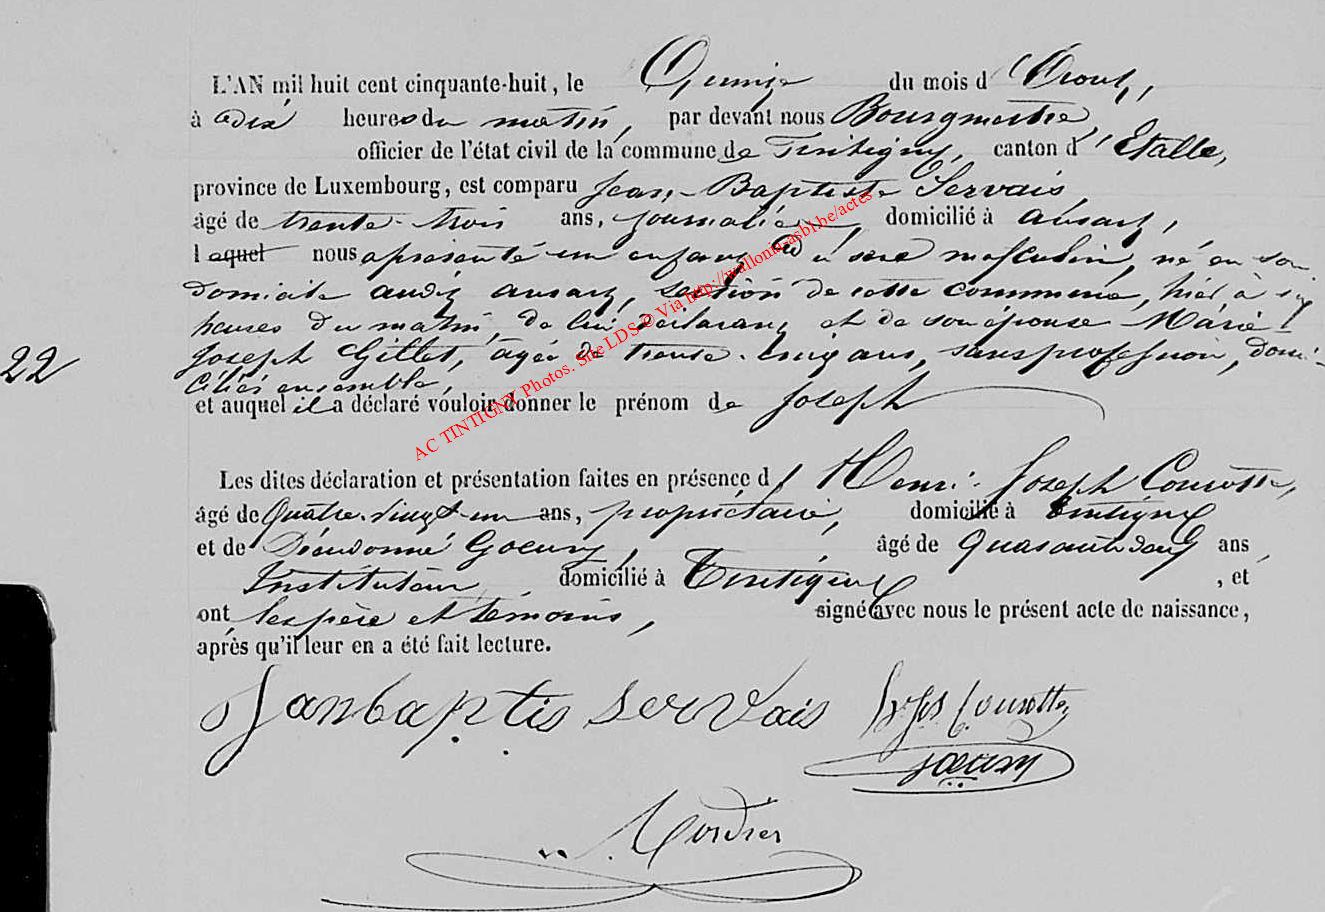 L'AN mil huit cent cinquante-huit, le Quinze du mois d'Aout,
à dix heures du matin, par devant nous Bourgmestre,
officier de l'état civil de la commune de Tintigny, canton d'Etalle,
province de Luxembourg, est comparu Jean-Baptiste Servais,
âgé de trente-trois ans, journalier, domicilié à ansart,
lequel nous a présenté un enfant du sexe masculin, né en son
domicile audit ansart, section de cette commune, hier, à six
heures du matin, de lui déclarant et de son épouse Marie
22
Joseph Gillet, agée de trente-cinq ans, sans profession, domi-
ciliés ensemble,
et auquel il a déclaré vouloir donner le prénom de Joseph
Les dites déclaration et présentation faites en présence d Henri-Joseph Courotte,
âgé de Quatre-Vingt-un ans, propriétaire, domicilié à tintigny
et de Dieudonné Goeury, âgé de quarante deux ans,
Instituteur, domicilié à Tintigny, et
ont les père et témoins, signé avec nous le présent acte de naissance,
après qu'il leur en a été fait lecture.
Janbaptis servais
goeury
AC TINTIGNY Photos. Site LDS © Via http://wallonia-asbl.be/actes